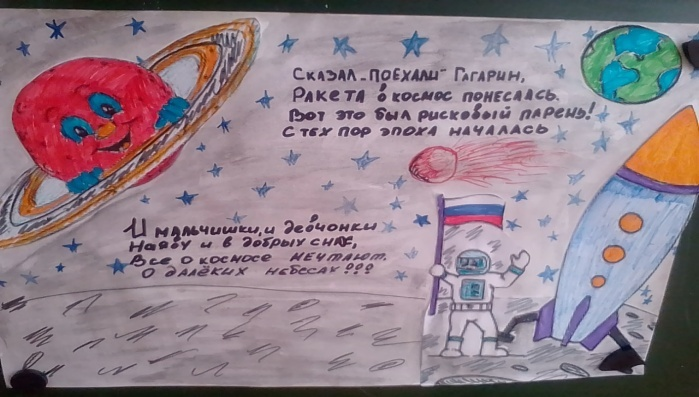 Сказал „ПОЕХАЛИ" ГАГАРИН,
РАКЕТА в космос понеслась.
Вот это был рисковый парень!
С тех пор эпоха началась
И мальчишки, и девчонки
Наяву и в добрых снах,
Все о космосе мечтают.
О далёких небесах!!!